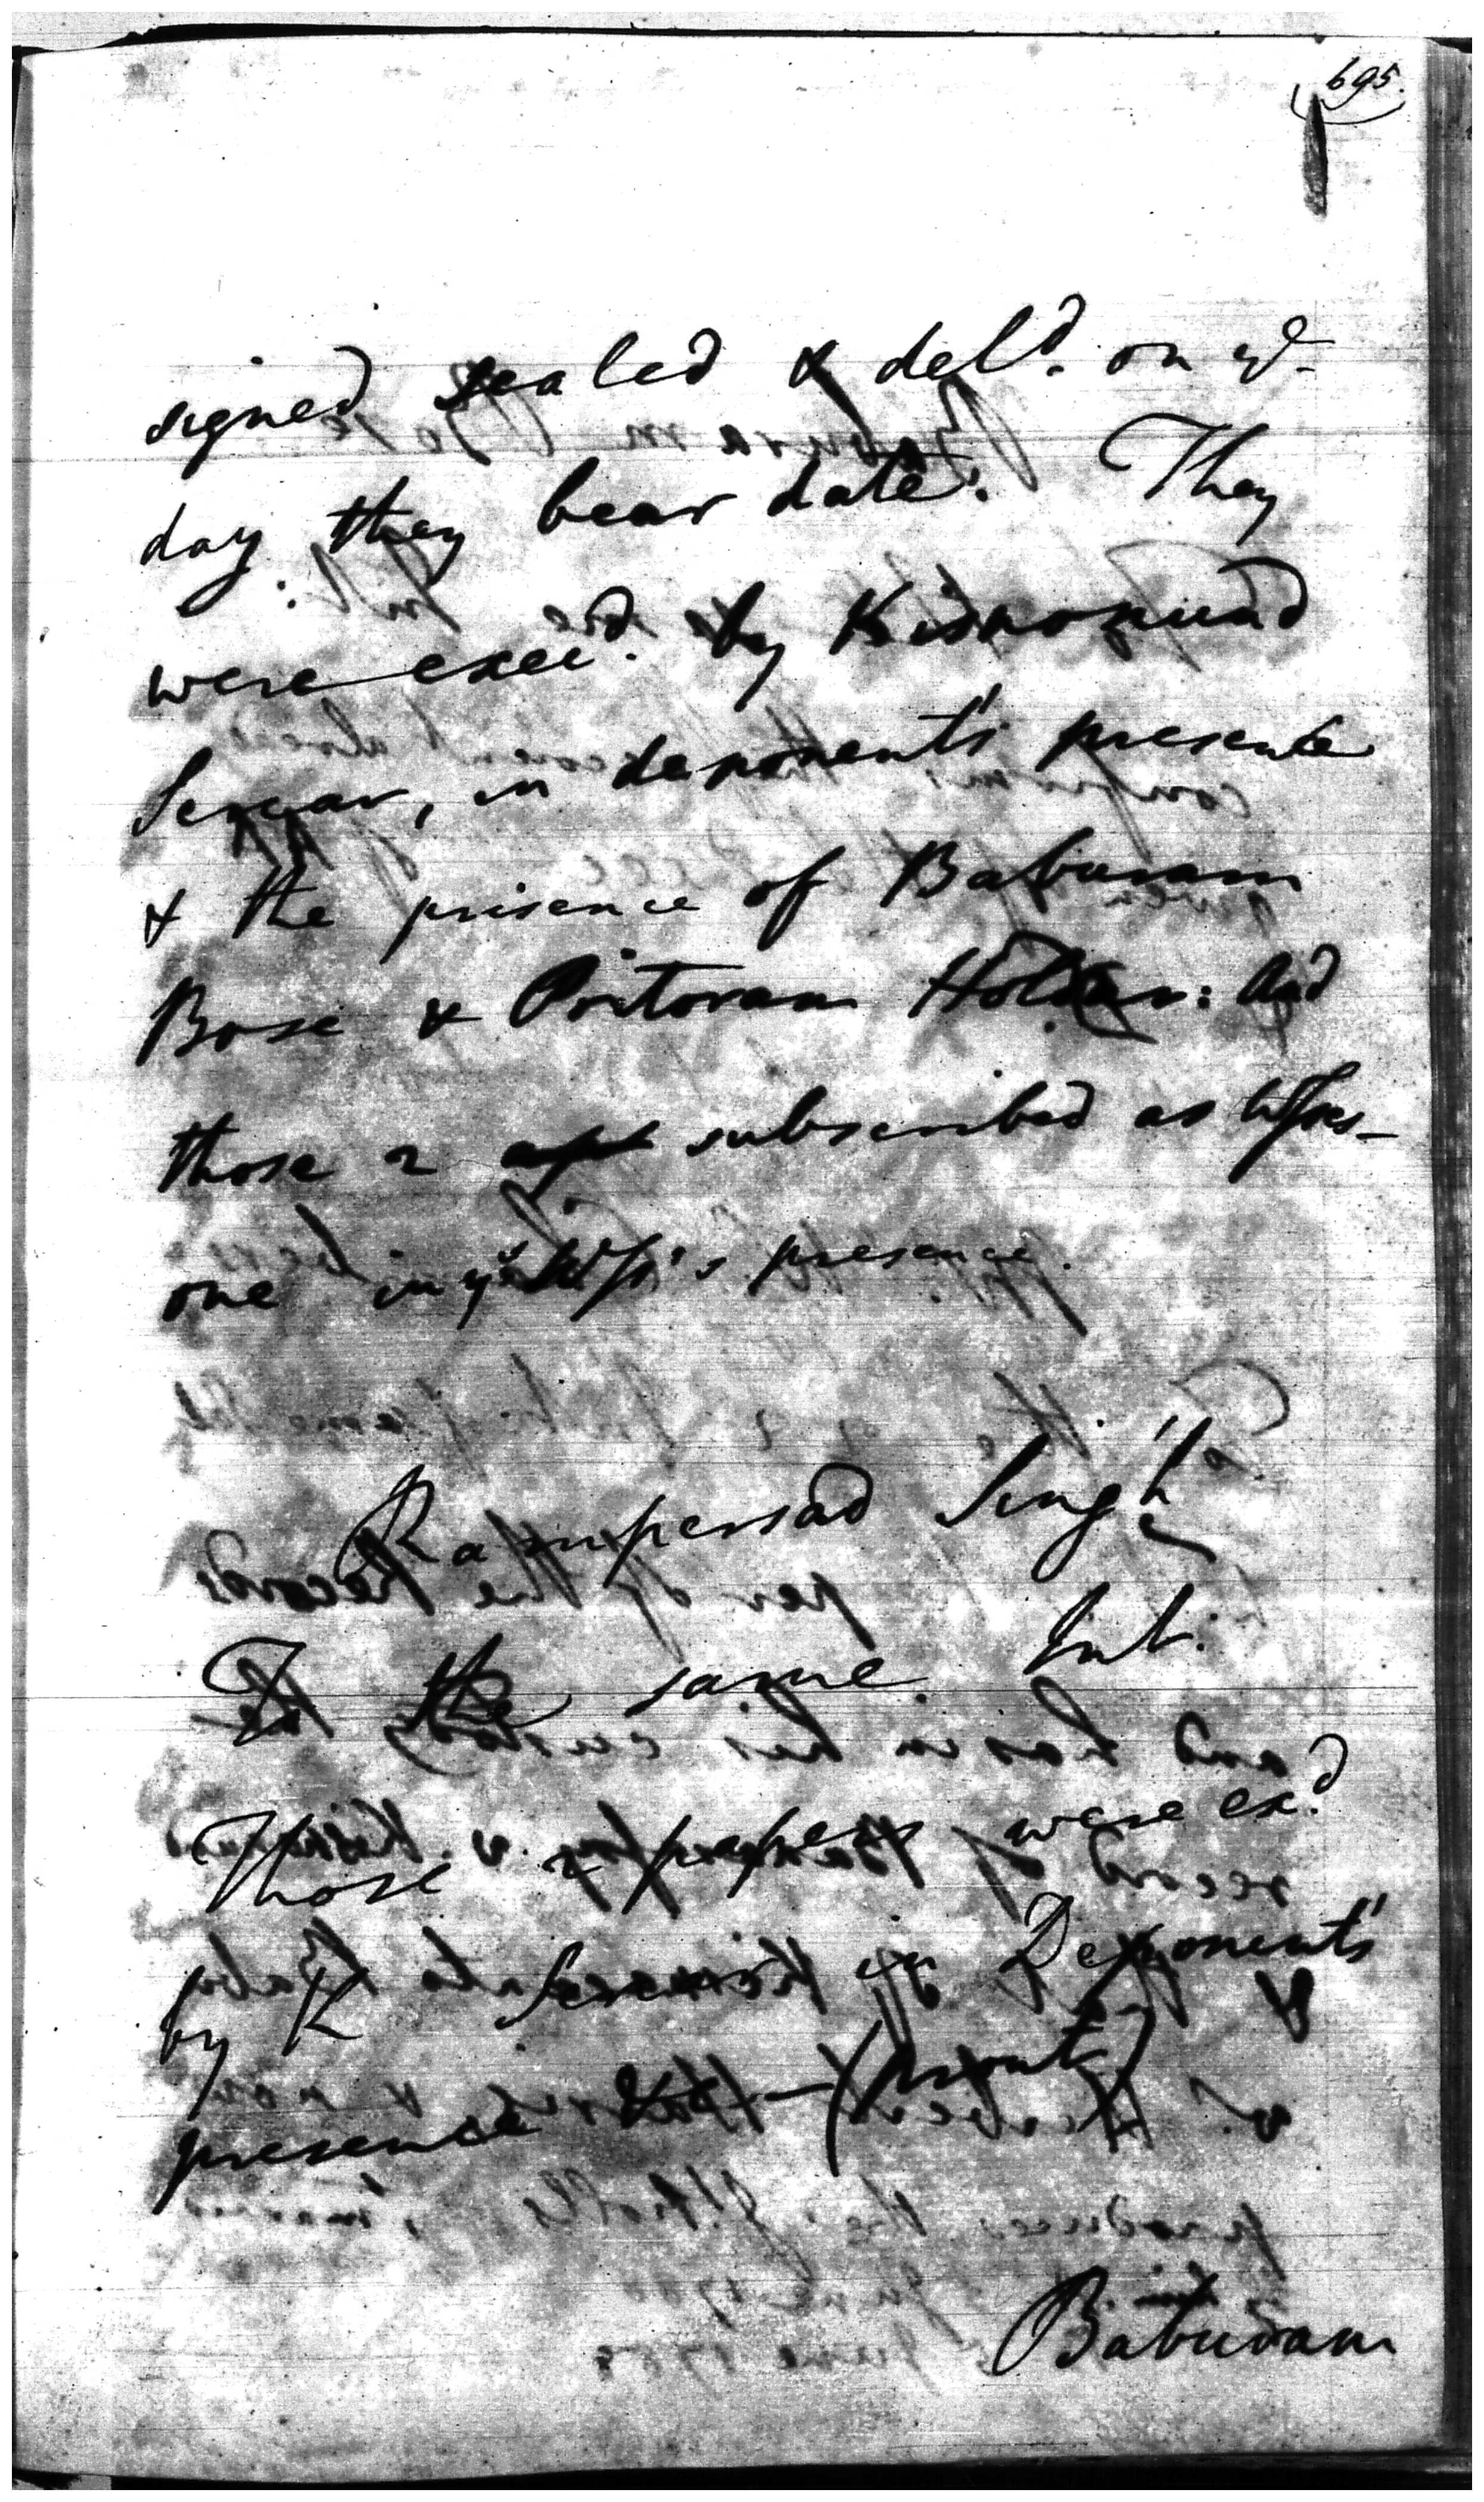 695.
signed sealed & deld. on ye
day they bear date. They
were exec.d by Kisnomund
Sercar, in deponent's presence
& the presence of Baburam
Bose & Pritoram Holdar: And
those 2 subscribed as Wses_
one in ye presence.
Rampersad Singh
To the same Int.
Those 2 papers were exd.
by K Sercar in Deponent's
presence (prout)
Baburam